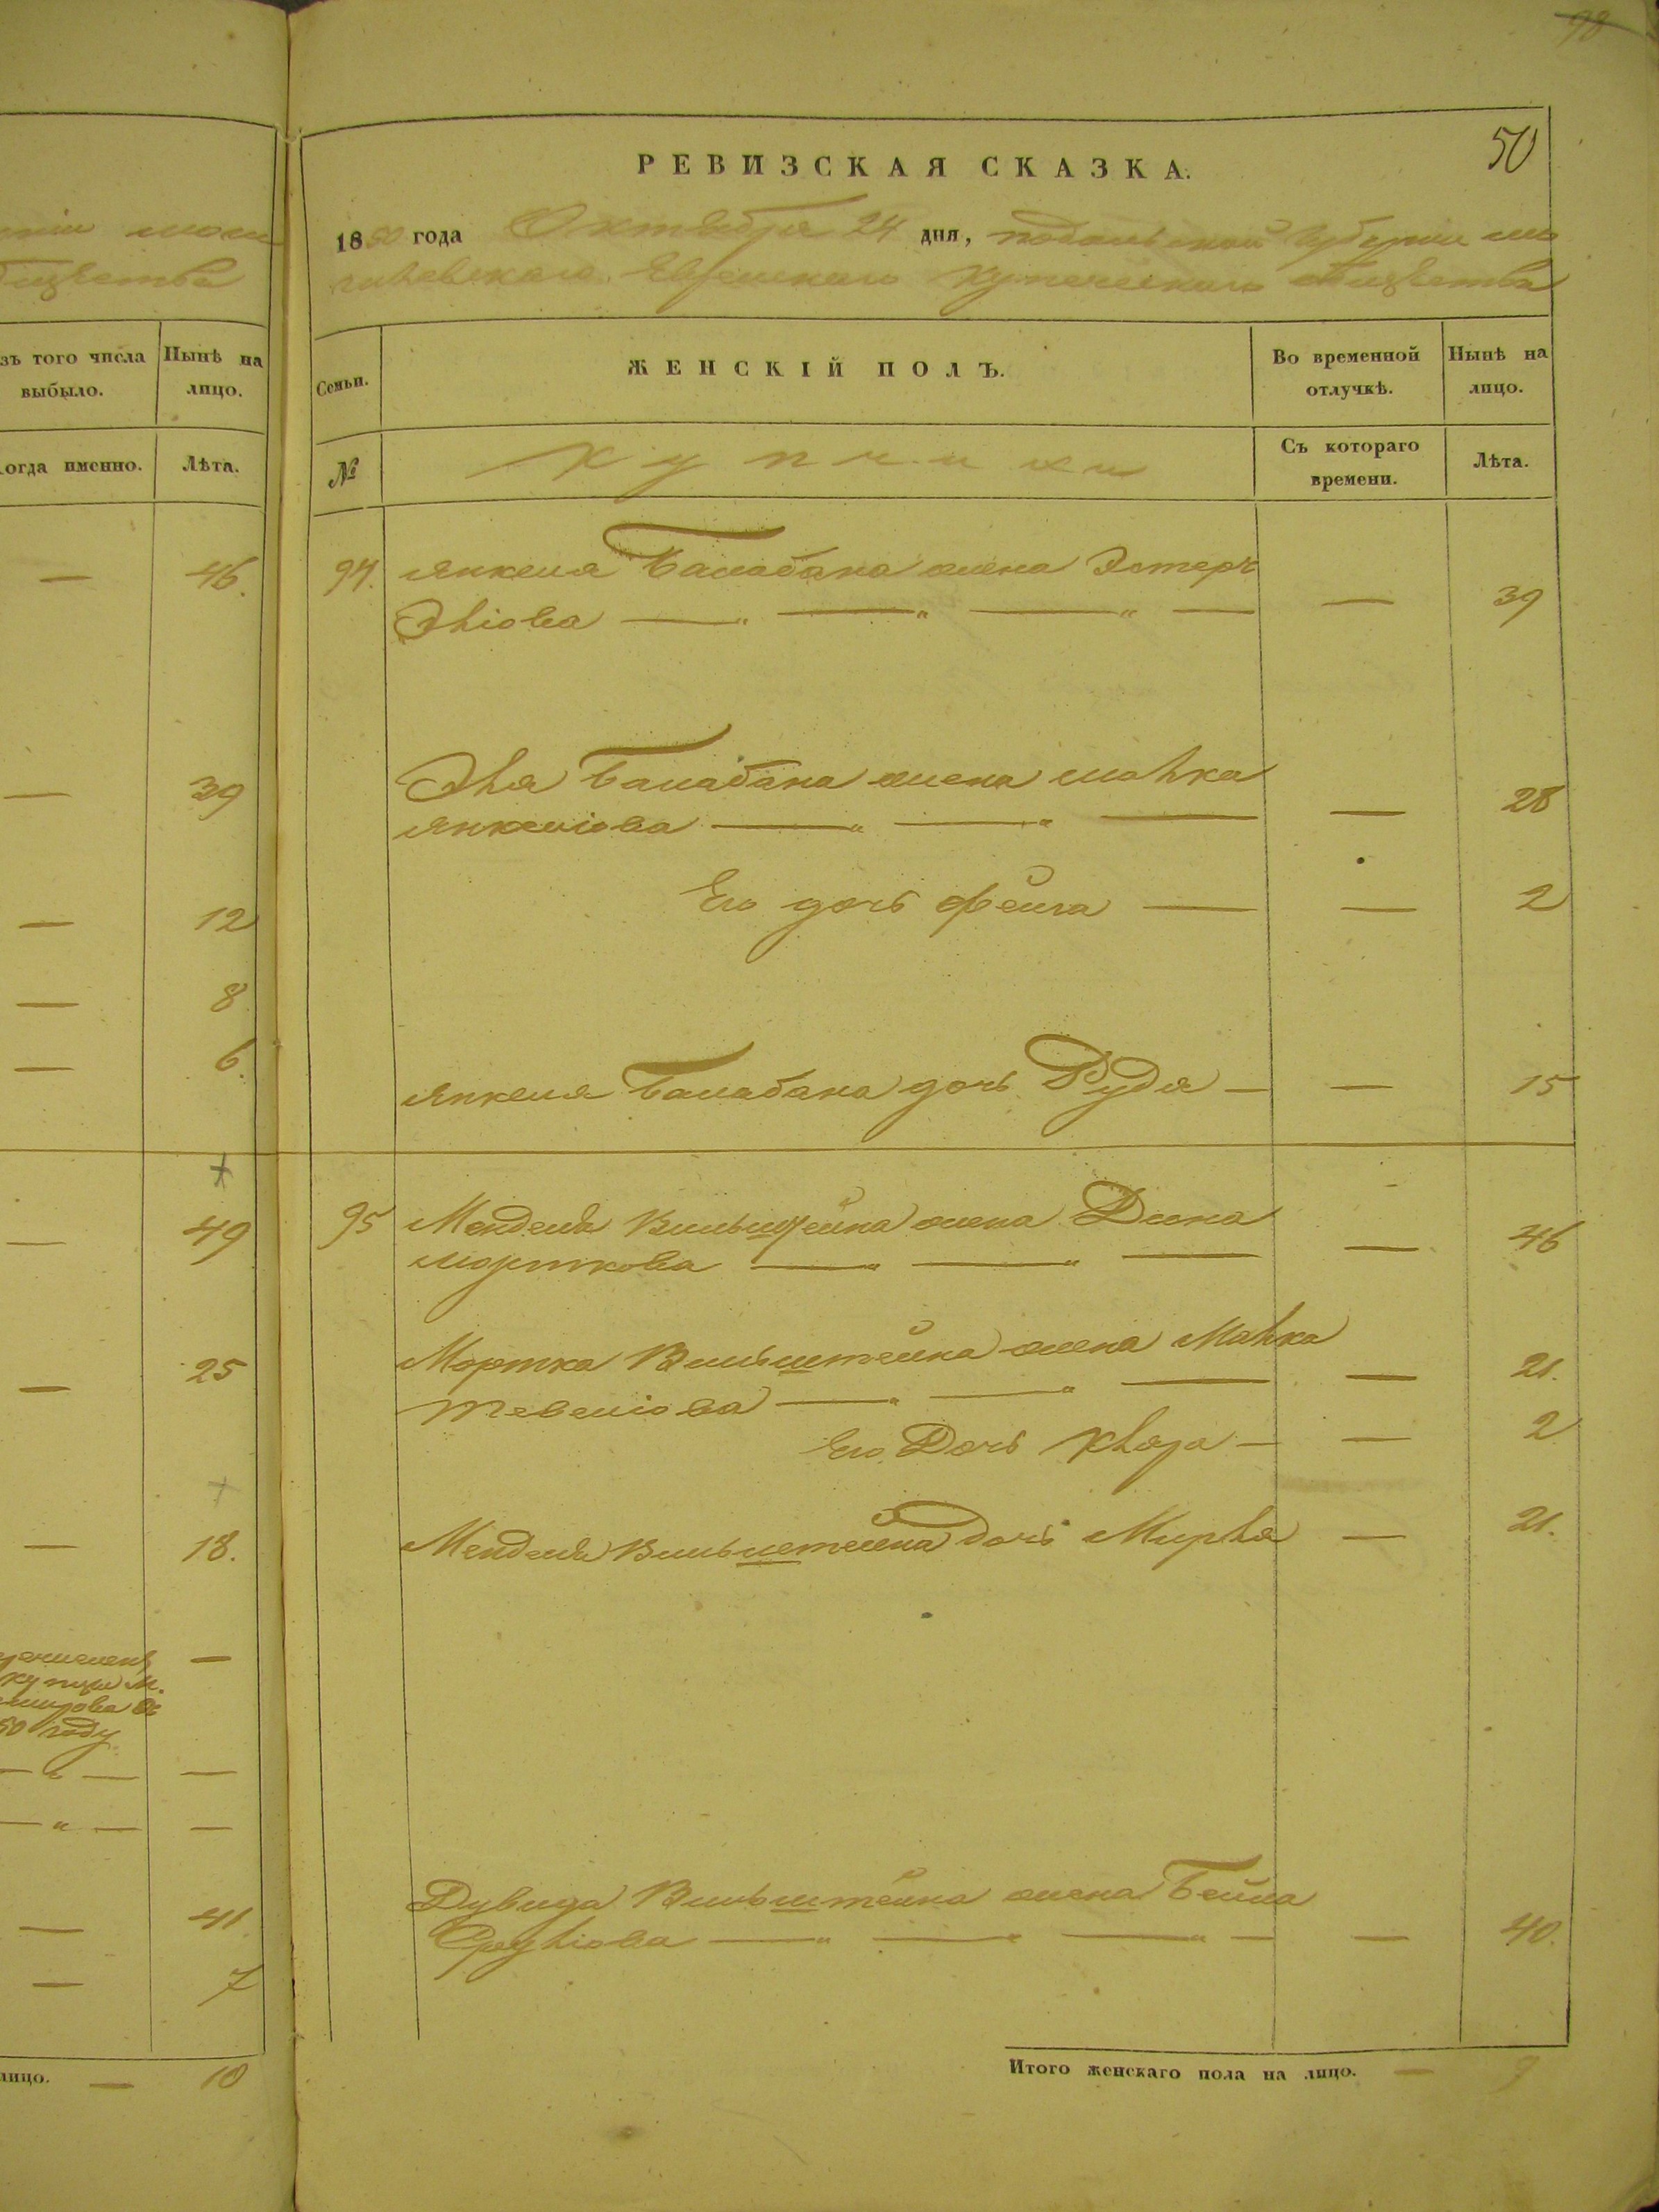 98
50
РЕВИЗСКАЯ СКАЗКА.
1850 года Октября 24 дня, подольской Губернии мо
гилевскаго Еврейскаго Купеческаго общества
зъ того числа выбыло.
Нынѣ на лицо.
Семьи.
ЖЕНСКІЙ ПОЛЪ.
Во временной отлучкѣ.
Нынѣ на лицо.
огда именно.
Лѣта.
№
Купчихи
Съ котораго времени.
Лѣта.
— 46.
94. Янкеля Балабана жена Эстеръ
Эліова — „ — „ — „ — — 39
— 39
Эля Балабана жена Малка
Янкеліова — „ — „ — — 28
— 12
Его дочь Фейга — — 2
— 8
— 6.
Янкеля Балабана дочь Рудя — — 15
— 49
95 Менделя Вильштейна жена Дина
Морткова — „ — „ — — 46
— 25
Мортка Вильштейна жена Малка
Тевеліова — „ — „ — — 21.
Его Дочь — — 2
— 18.
Менделя Вильштейна дочь — 21.
купцы М.
50 году
— „ — —
— „ — —
— 41
Дувида Вильштейна жена Бейла
Сруліова — „ — „ — „ — — 40.
— 7
лицо. — 10
Итого женскаго пола на лицо. — 9